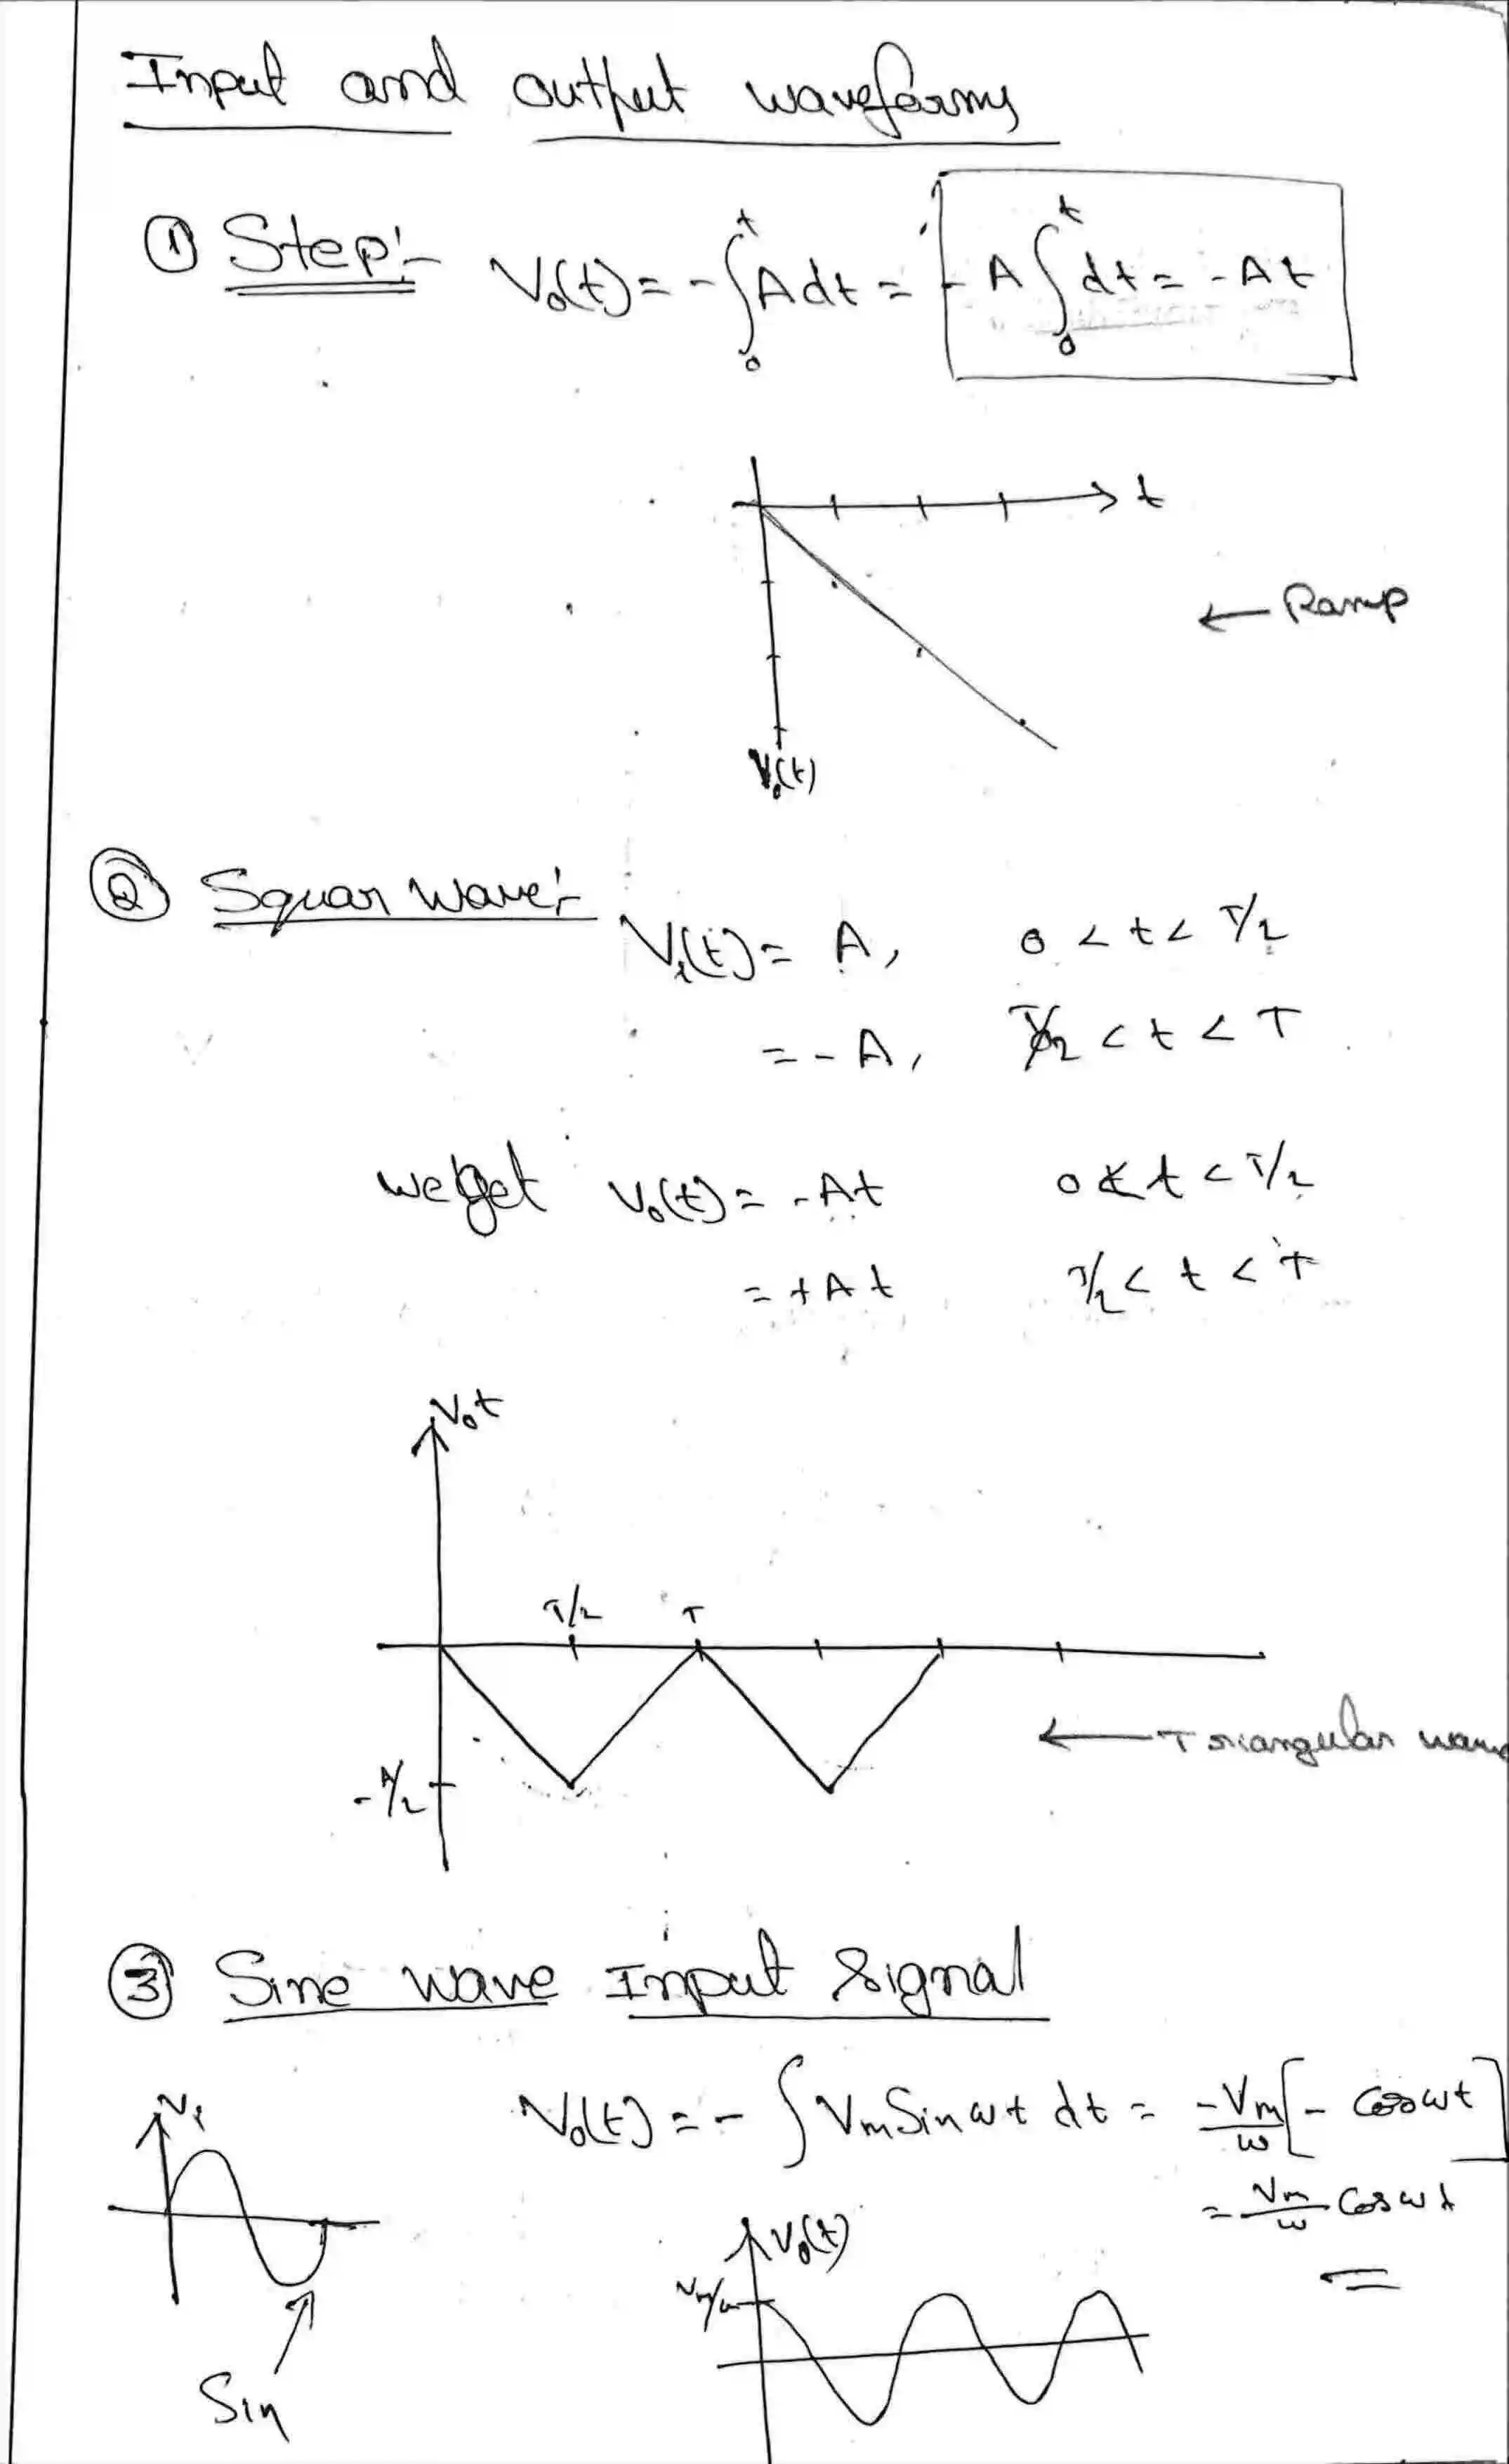 Input and output waveforms
① Step:- V₀(t) = - ∫₀ᵗ A dt = - A ∫₀ᵗ dt = - At
t
← Ramp
V₀(t)
② Squar wave:-
Vᵢ(t) = A, 0 < t < T/2
= - A, T/2 < t < T
we get V₀(t) = - At 0 < t < T/2
= + At T/2 < t < T
V₀t
T/2 T
← Triangular wave
- A/2
③ Sine wave Input Signal
Vᵢ V₀(t) = - ∫ Vm Sin ωt dt = -Vm/ω [- Cos ωt]
= Vm/ω Cos ωt
V₀(t)
Vm/ω
Sin